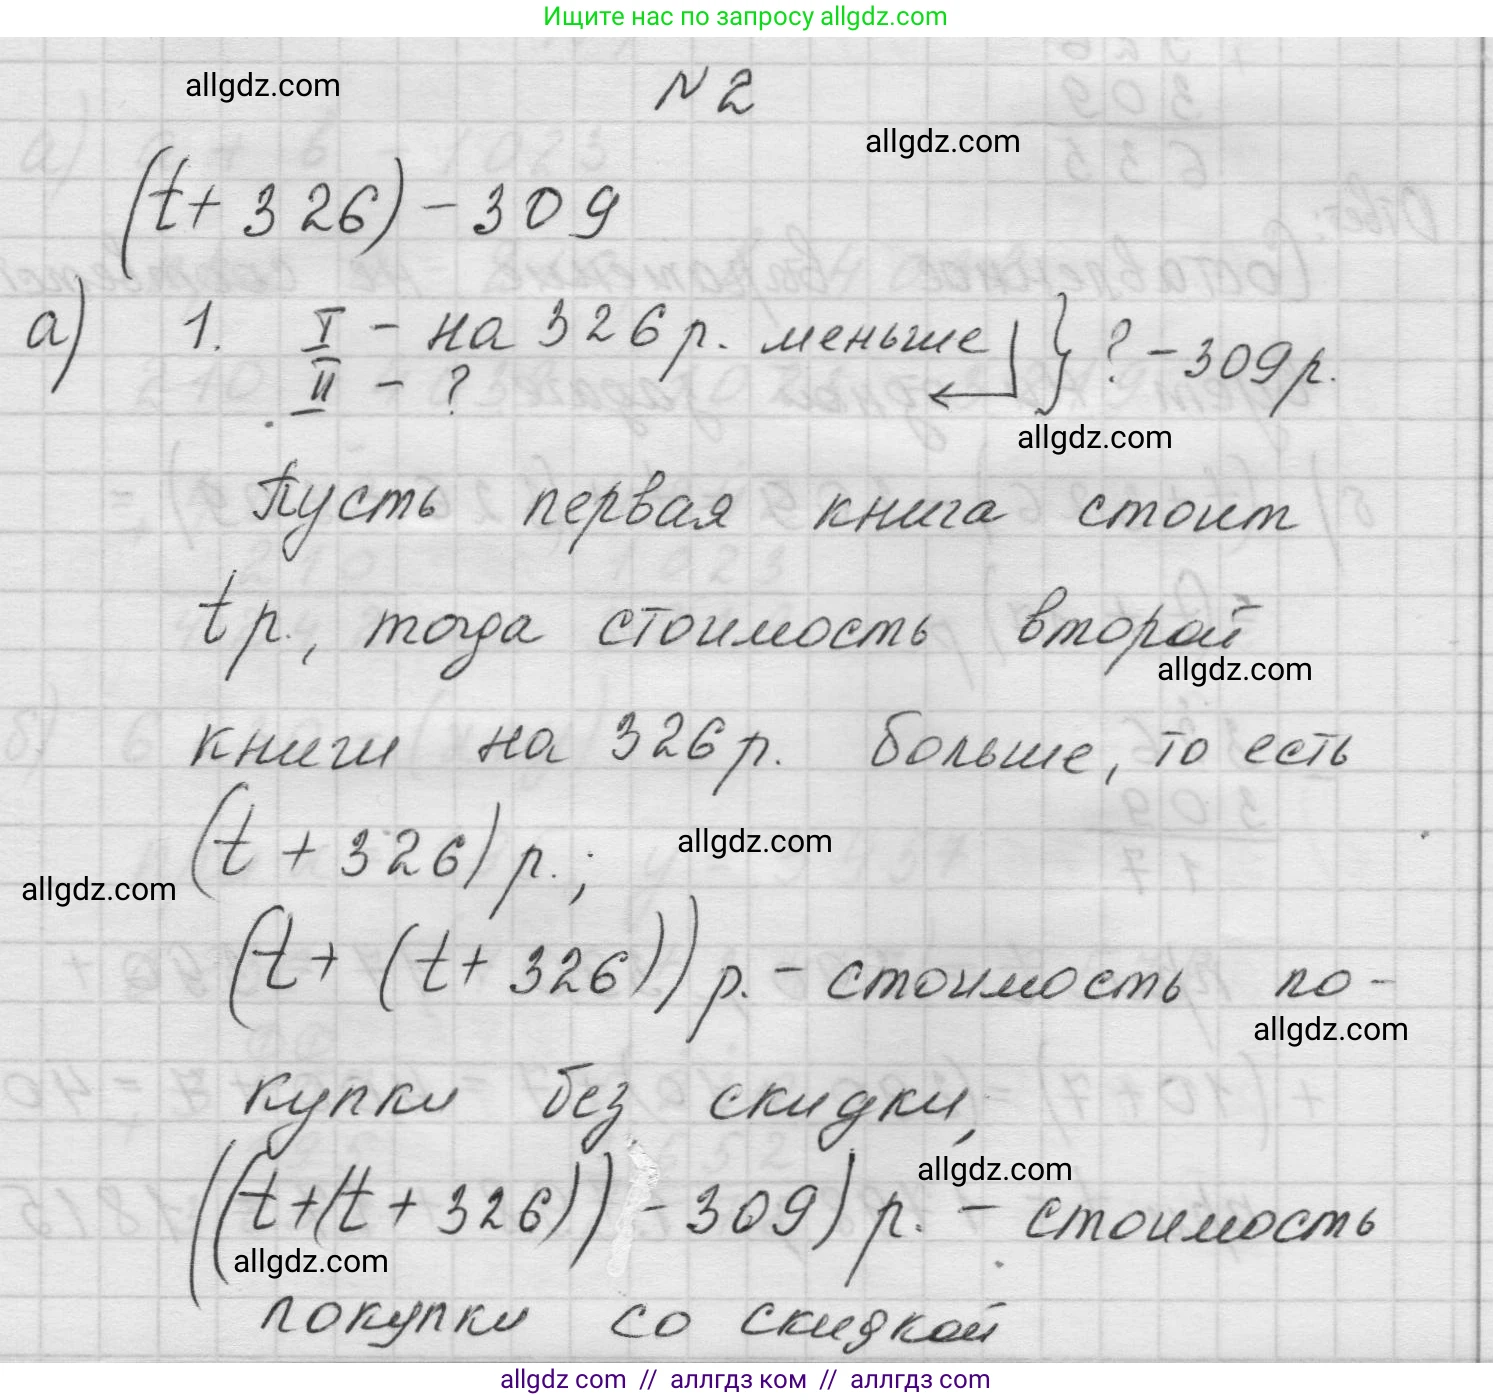 Ищите нас по запросу allgdz.com
allgdz.com
№ 2
allgdz.com
(t + 326) - 309
а) 1. I - на 326 р. меньше } ? - 309 р.
II - ?
allgdz.com
Пусть первая книга стоит
t р., тогда стоимость второй
allgdz.com
книги на 326 р. больше, то есть
(t + 326) р.;
allgdz.com
allgdz.com
(t + (t + 326)) р. - стоимость по-
allgdz.com
купки без скидки,
allgdz.com
((t + (t + 326)) - 309) р. - стоимость
allgdz.com
покупки со скидкой
allgdz com // аллгдз ком // аллгдз com